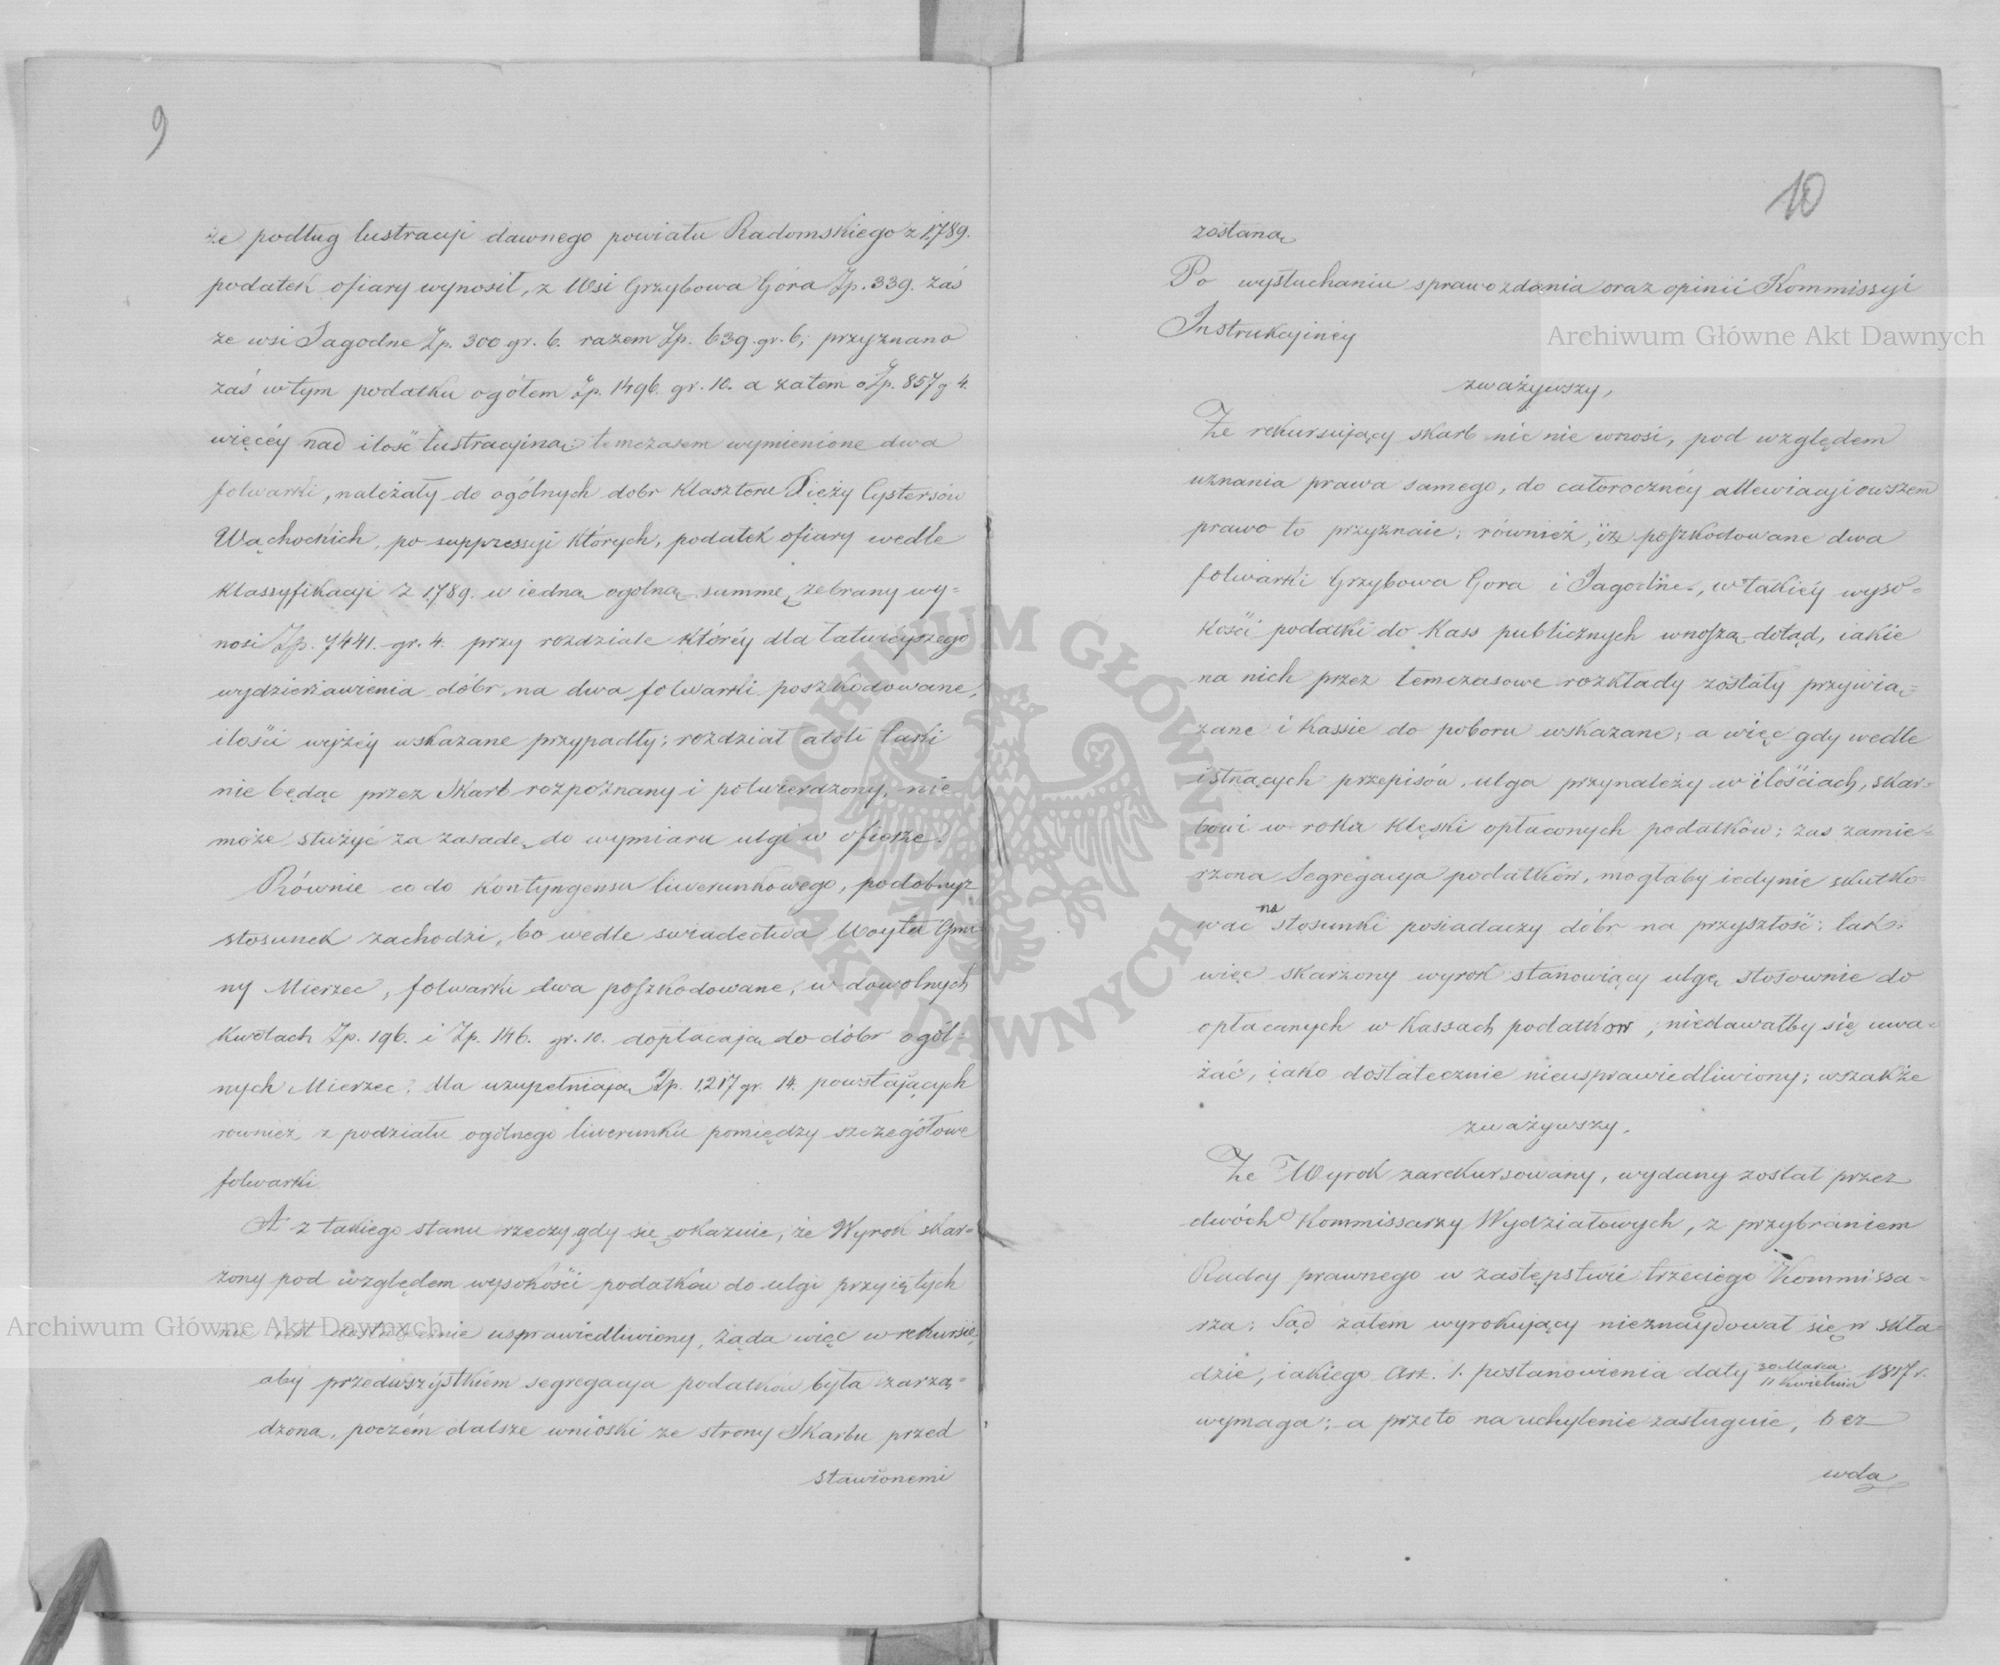 9
że podług lustracyi dawnego powiatu Radomskiego z 1789.
podatek ofiary wynosił, z Wsi Grzybowa Góra Zp. 339. zaś
ze wsi Jagodne Zp. 300 gr. 6. razem Zp. 639. gr. 6; przyznano
zaś w tym podatku ogółem Zp. 1496. gr. 10. a zatem o Zp. 857 g 4.
więcéy nad ilość lustracyiną; tymczasem wymienione dwa
folwarki, należały do ogólnych dobr Klasztoru Xięży Cystersów
Wąchockich, po suppressyi których, podatek ofiary wedle
Klassyfikacyi z 1789. w iedną ogolną summę zebrany wy-
nosi Zp. 7441. gr. 4. przy rozdziale któréy dla łatwieyszego
wydzierżawienia dóbr, na dwa folwarki poszkodowane,
ilości wyżéy wskazane przypadły; rozdział atoli taki
nie będąc przez Skarb rozpoznany i potwierdzony, nie
może służyć za zasadę do wymiaru ulgi w ofierze.
Równie co do Kontyngensu liwerunkowego, podobnyż
stosunek zachodzi, bo wedle swiadectwa Woyta Gmi
ny Mierzec, folwarki dwa poszkodowane, w dowolnych
Kwotach Zp. 196. i Zp. 146. gr. 10. dopłacają do dóbr ogól-
nych Mierzec; dla uzupełnienia Zp. 1,217 gr. 14. powstających
rownież z podziału ogólnego liwerunku pomiędzy szczegółowe
folwarki.
A z takiego stanu rzeczy gdy się okazuie, że Wyrok skar-
żony pod względem wysokości podatków do ulgi przyiętych
nie iest dostatecznie usprawiedliwiony, żąda więc w rekursie,
aby przedwszystkiem segregacya podatków była zarzą-
dzona, poczém dalsze wnioski ze strony Skarbu przed
stawionemi
10
zostaną
Po wysłuchaniu sprawozdania oraz opinii Kommissyi
Instrukcyinéy
zważywszy,
Że rekursujący skarb nic nie wnosi, pod względem
uznania prawa samego, do całorocznéy allewiacyi owszem
prawo to przyznaie; również, iż poszkodowane dwa
folwarki Grzybowa Gora i Jagodne, w takiéy wyso-
kości podatki do Kass publicznych wnoszą dotąd, iakie
na nich przez temczasowe rozkłady zostały przywią-
zane i Kassie do poboru wskazane; a więc gdy wedle
istnących przepisów, ulga przynależy w ilościach, skar-
bowi w roku klęski opłaconych podatków; zas zamie-
rzona Segregacya podatków, mogłaby iedynie skutko-
wać na stosunki posiadaczy dóbr na przyszłość; tak
więc skarżony wyrok stanowiący ulgę stosownie do
opłacanych w Kassach podatkow, niedawałby się uwa-
żać, iako dostatecznie nieusprawiedliwiony; wszakże
zważywszy,
Że Wyrok zarekursowany, wydany został przez
dwóch Kommissarzy Wydziałowych, z przybraniem
Radcy prawnego w zastępstwie trzeciego Kommissa-
rza; Sąd zatem wyrokujący nieznaydował się w skła-
dzie, iakiego Art. 1. postanowienia daty 30 Marca
11 Kwietnia 1817 r.
wymaga; a przeto na uchylenie zasługuie, bez
wda
Archiwum Główne Akt Dawnych
Archiwum Główne Akt Dawnych
ARCHIWUM GŁÓWNE AKT DAWNYCH